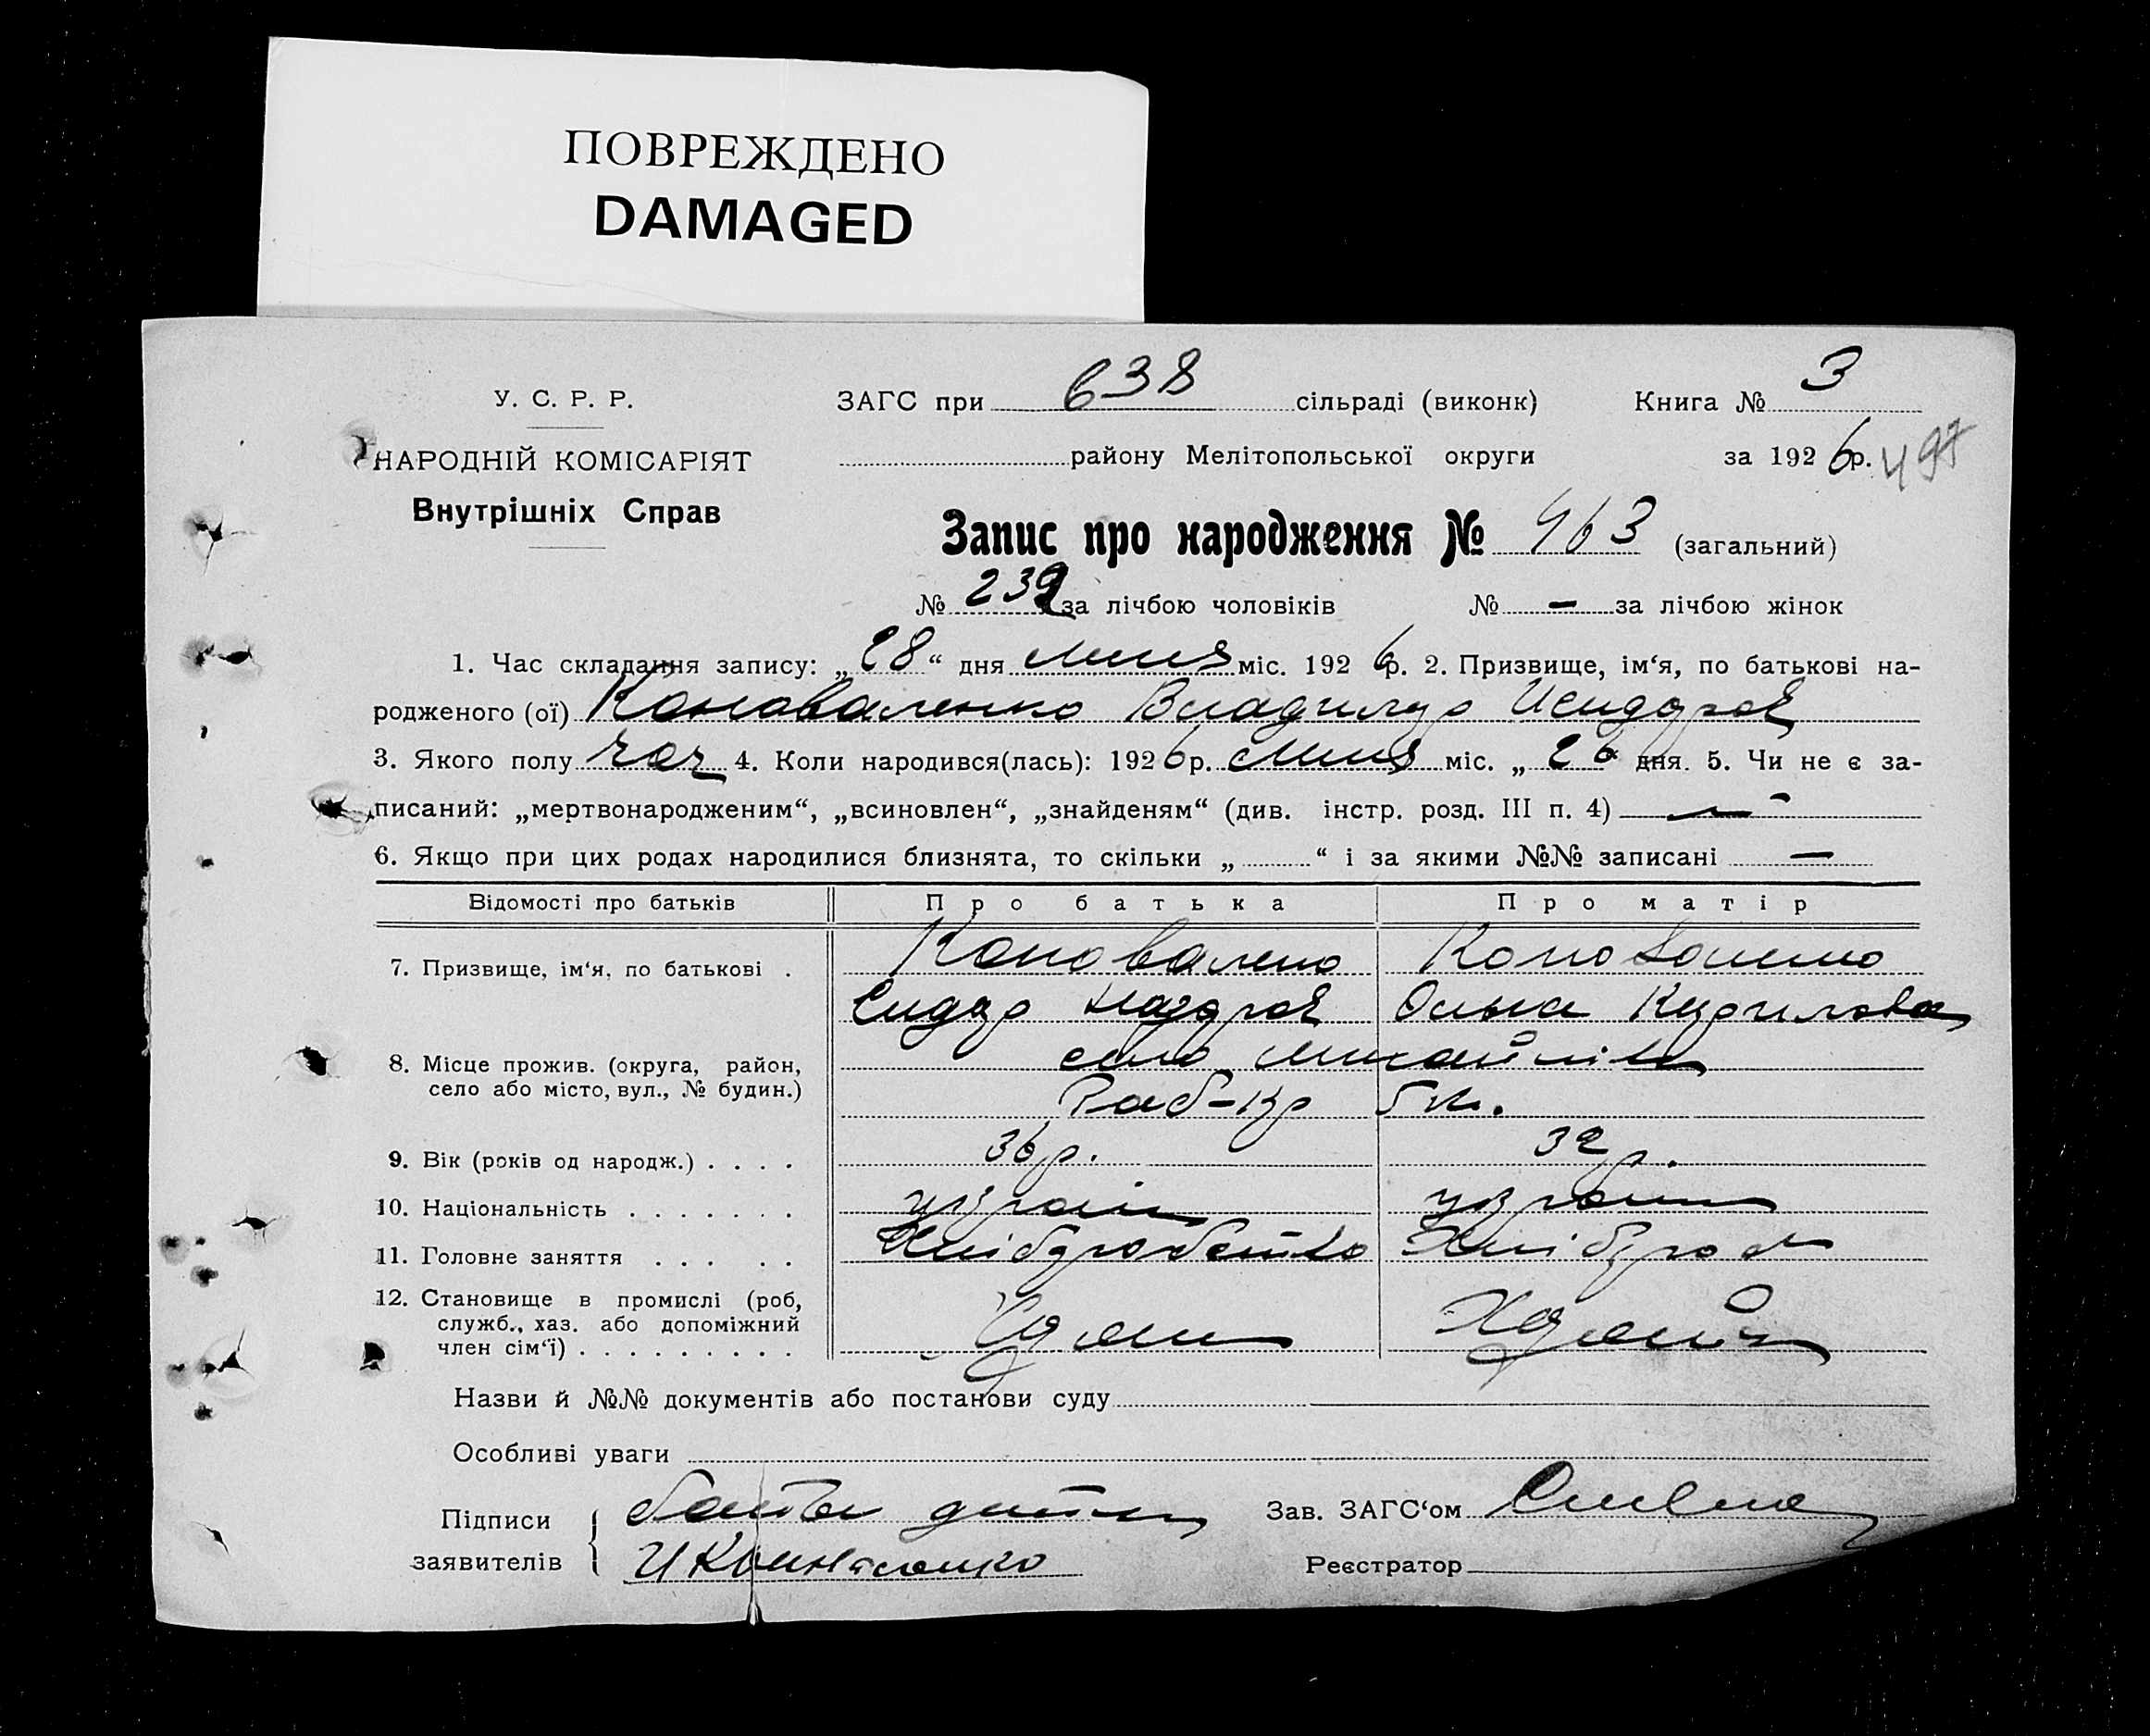 ПОВРЕЖДЕНО
DAMAGED
У. С. Р. Р.
НАРОДНІЙ КОМІСАРІЯТ
Внутрішніх Справ
ЗАГС при 638 сільраді (виконк) Книга № 3
району Мелітопольської округи за 1926р. 497
Запис про народження № 463 (загальний)
№ 239 за лічбою чоловіків № — за лічбою жінок
1. Час складання запису: „28“ дня міс. 1926р. 2. Призвище, ім‘я, по батькові на-
родженого (ої) Коноваленко Владимир Исидоров
3. Якого полу чол 4. Коли народився(лась): 1926р. міс. „26“ дня. 5. Чи не є за-
писаний: „мертвонародженим“, „всиновлен“, „знайденям“ (див. інстр. розд. III п. 4) —
6. Якщо при цих родах народилися близнята, то скільки „ “ і за якими №№ записані —
Відомості про батьків Про батька Про матір
7. Призвище, ім‘я, по батькові . Коновалено
Сидор Ольна Кирилова
8. Місце прожив. (округа, район, село або місто, вул., № будин.) село
9. Вік (років од народж.) . . . . 36 р. 32 р.
10. Національність . . . . . . . україн украин
11. Головне заняття . . . . . Хлібороб
12. Становище в промислі (роб, служб., хаз. або допоміжний член сім‘ї) . . . . . . . . .
Назви й №№ документів або постанови суду
Особливі уваги
Підписи заявителів
Зав. ЗАГС‘ом
Реєстратор